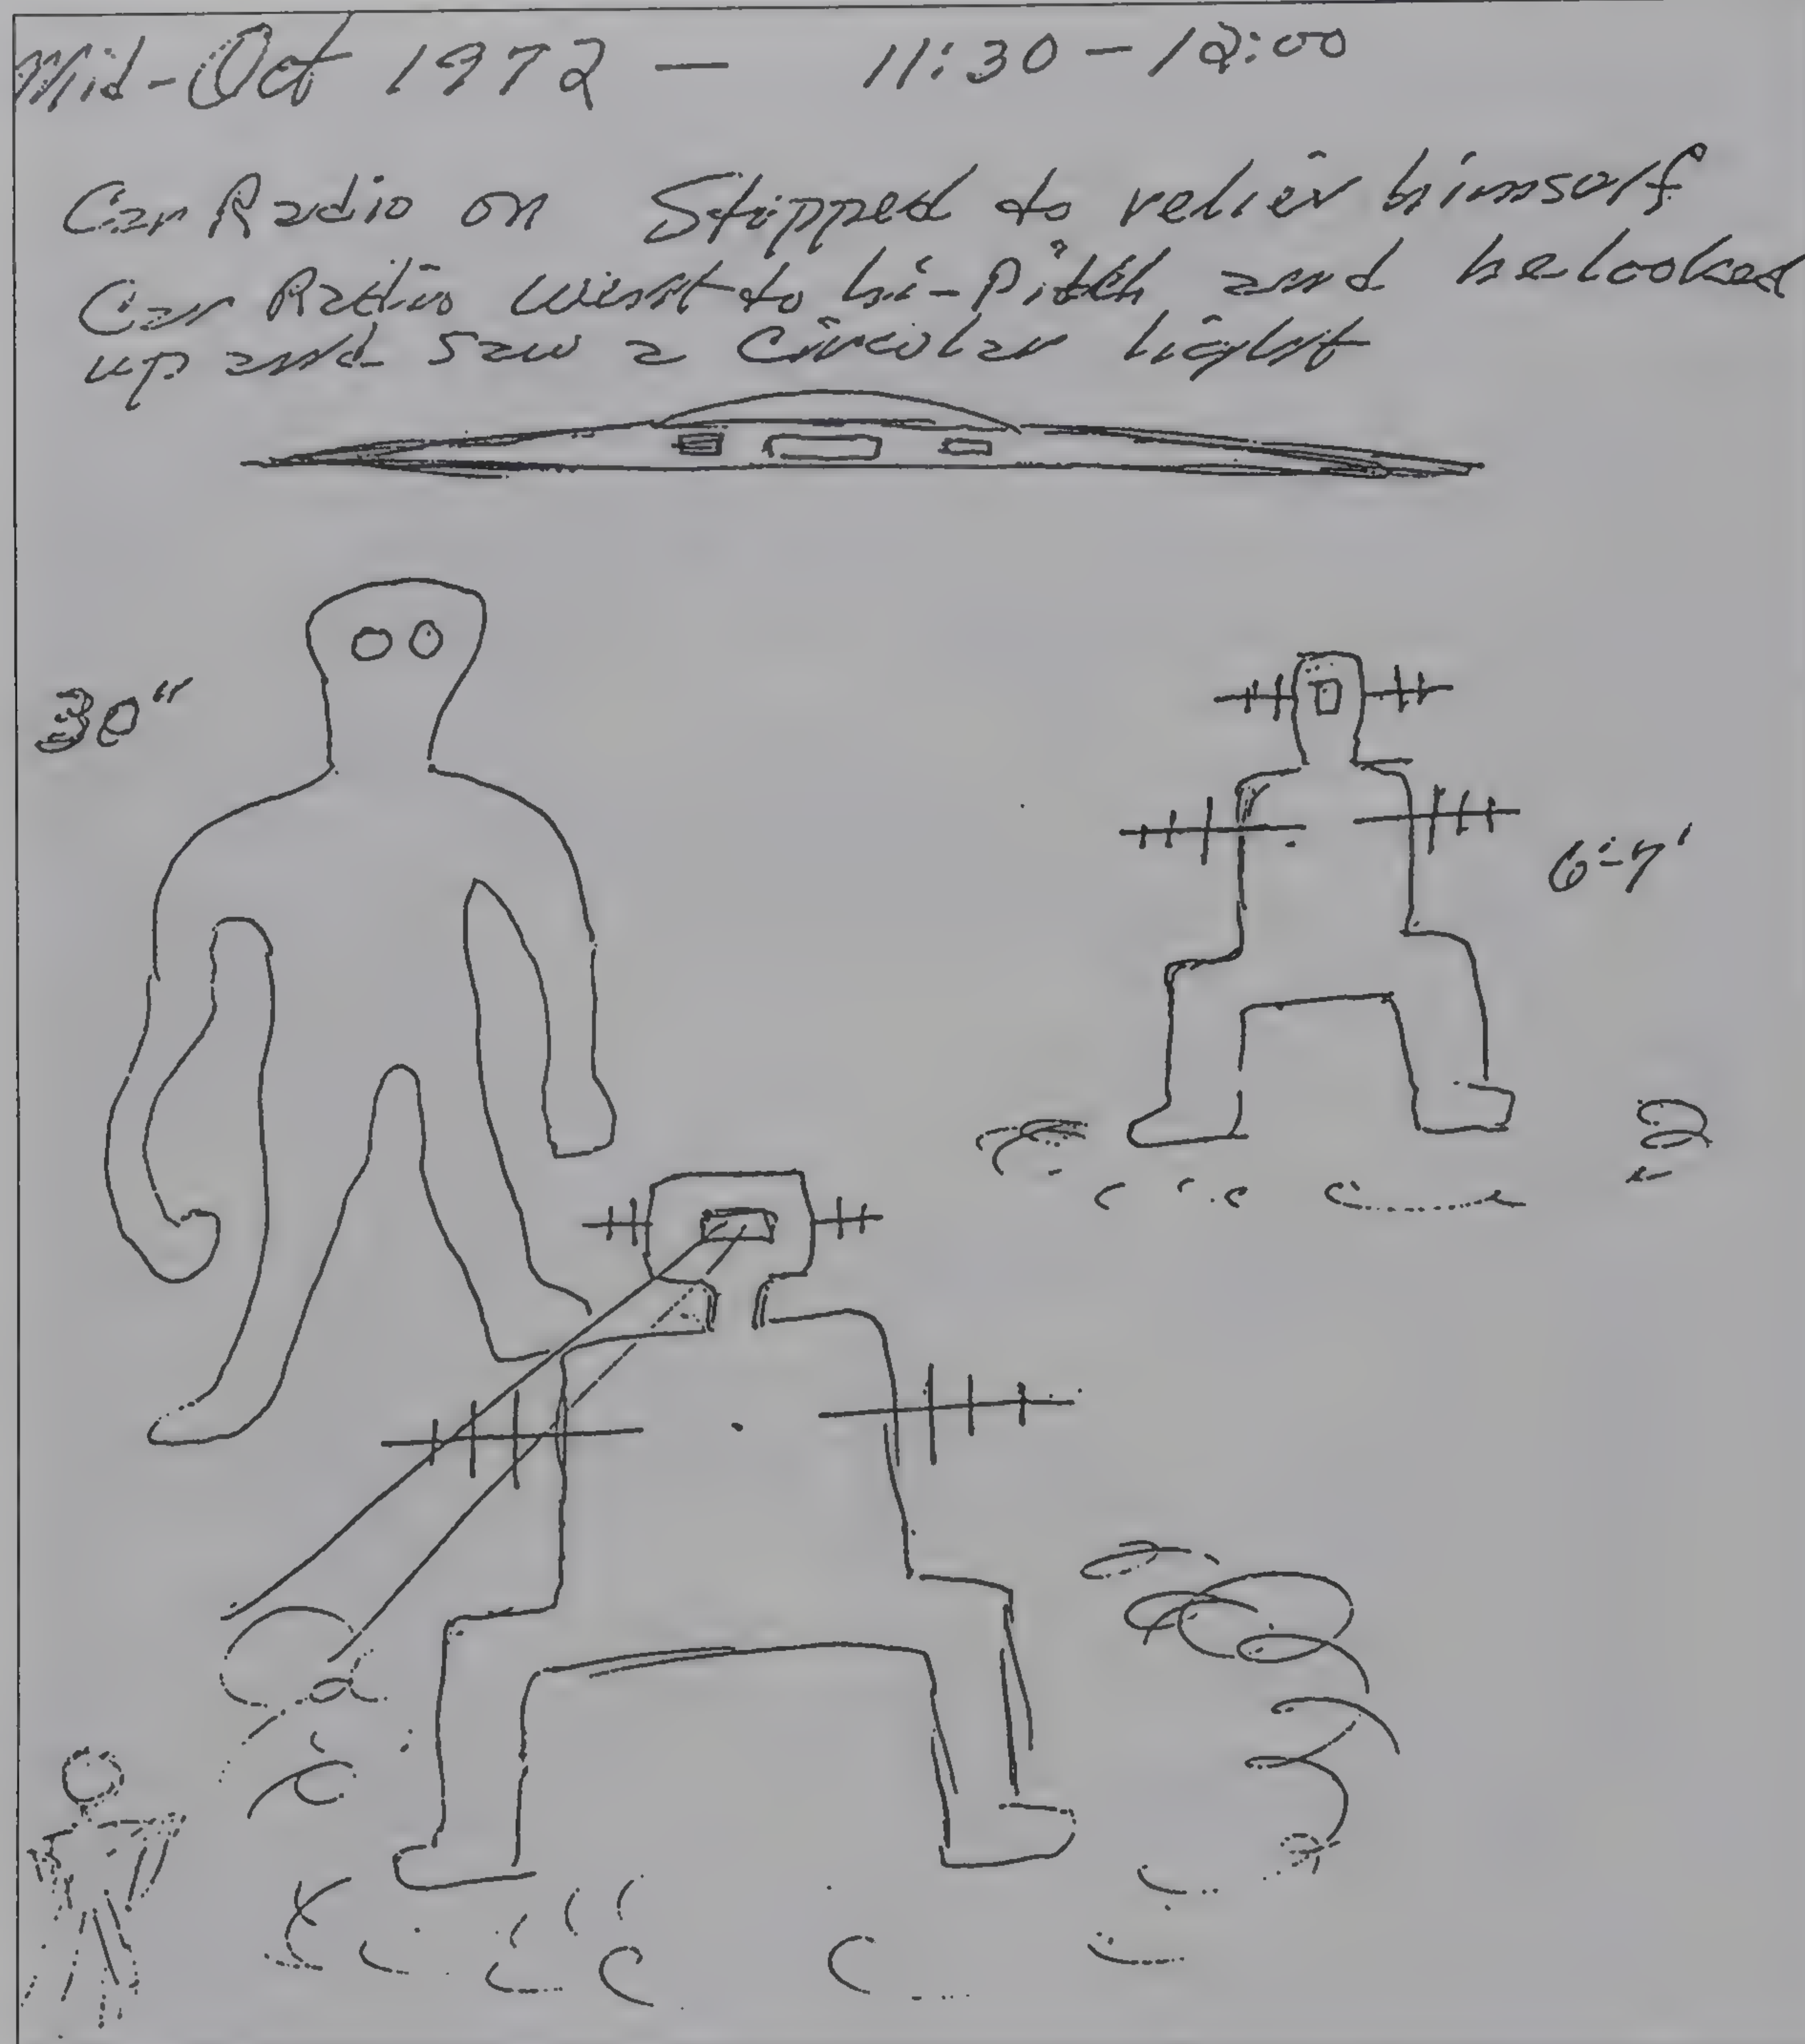 Mid-Oct 1972 — 11:30 - 12:00
Car Radio on Stopped to reliev himself
Car Radio went to hi-Pitch and he looked
up and saw a circular light
30"
6'-7'